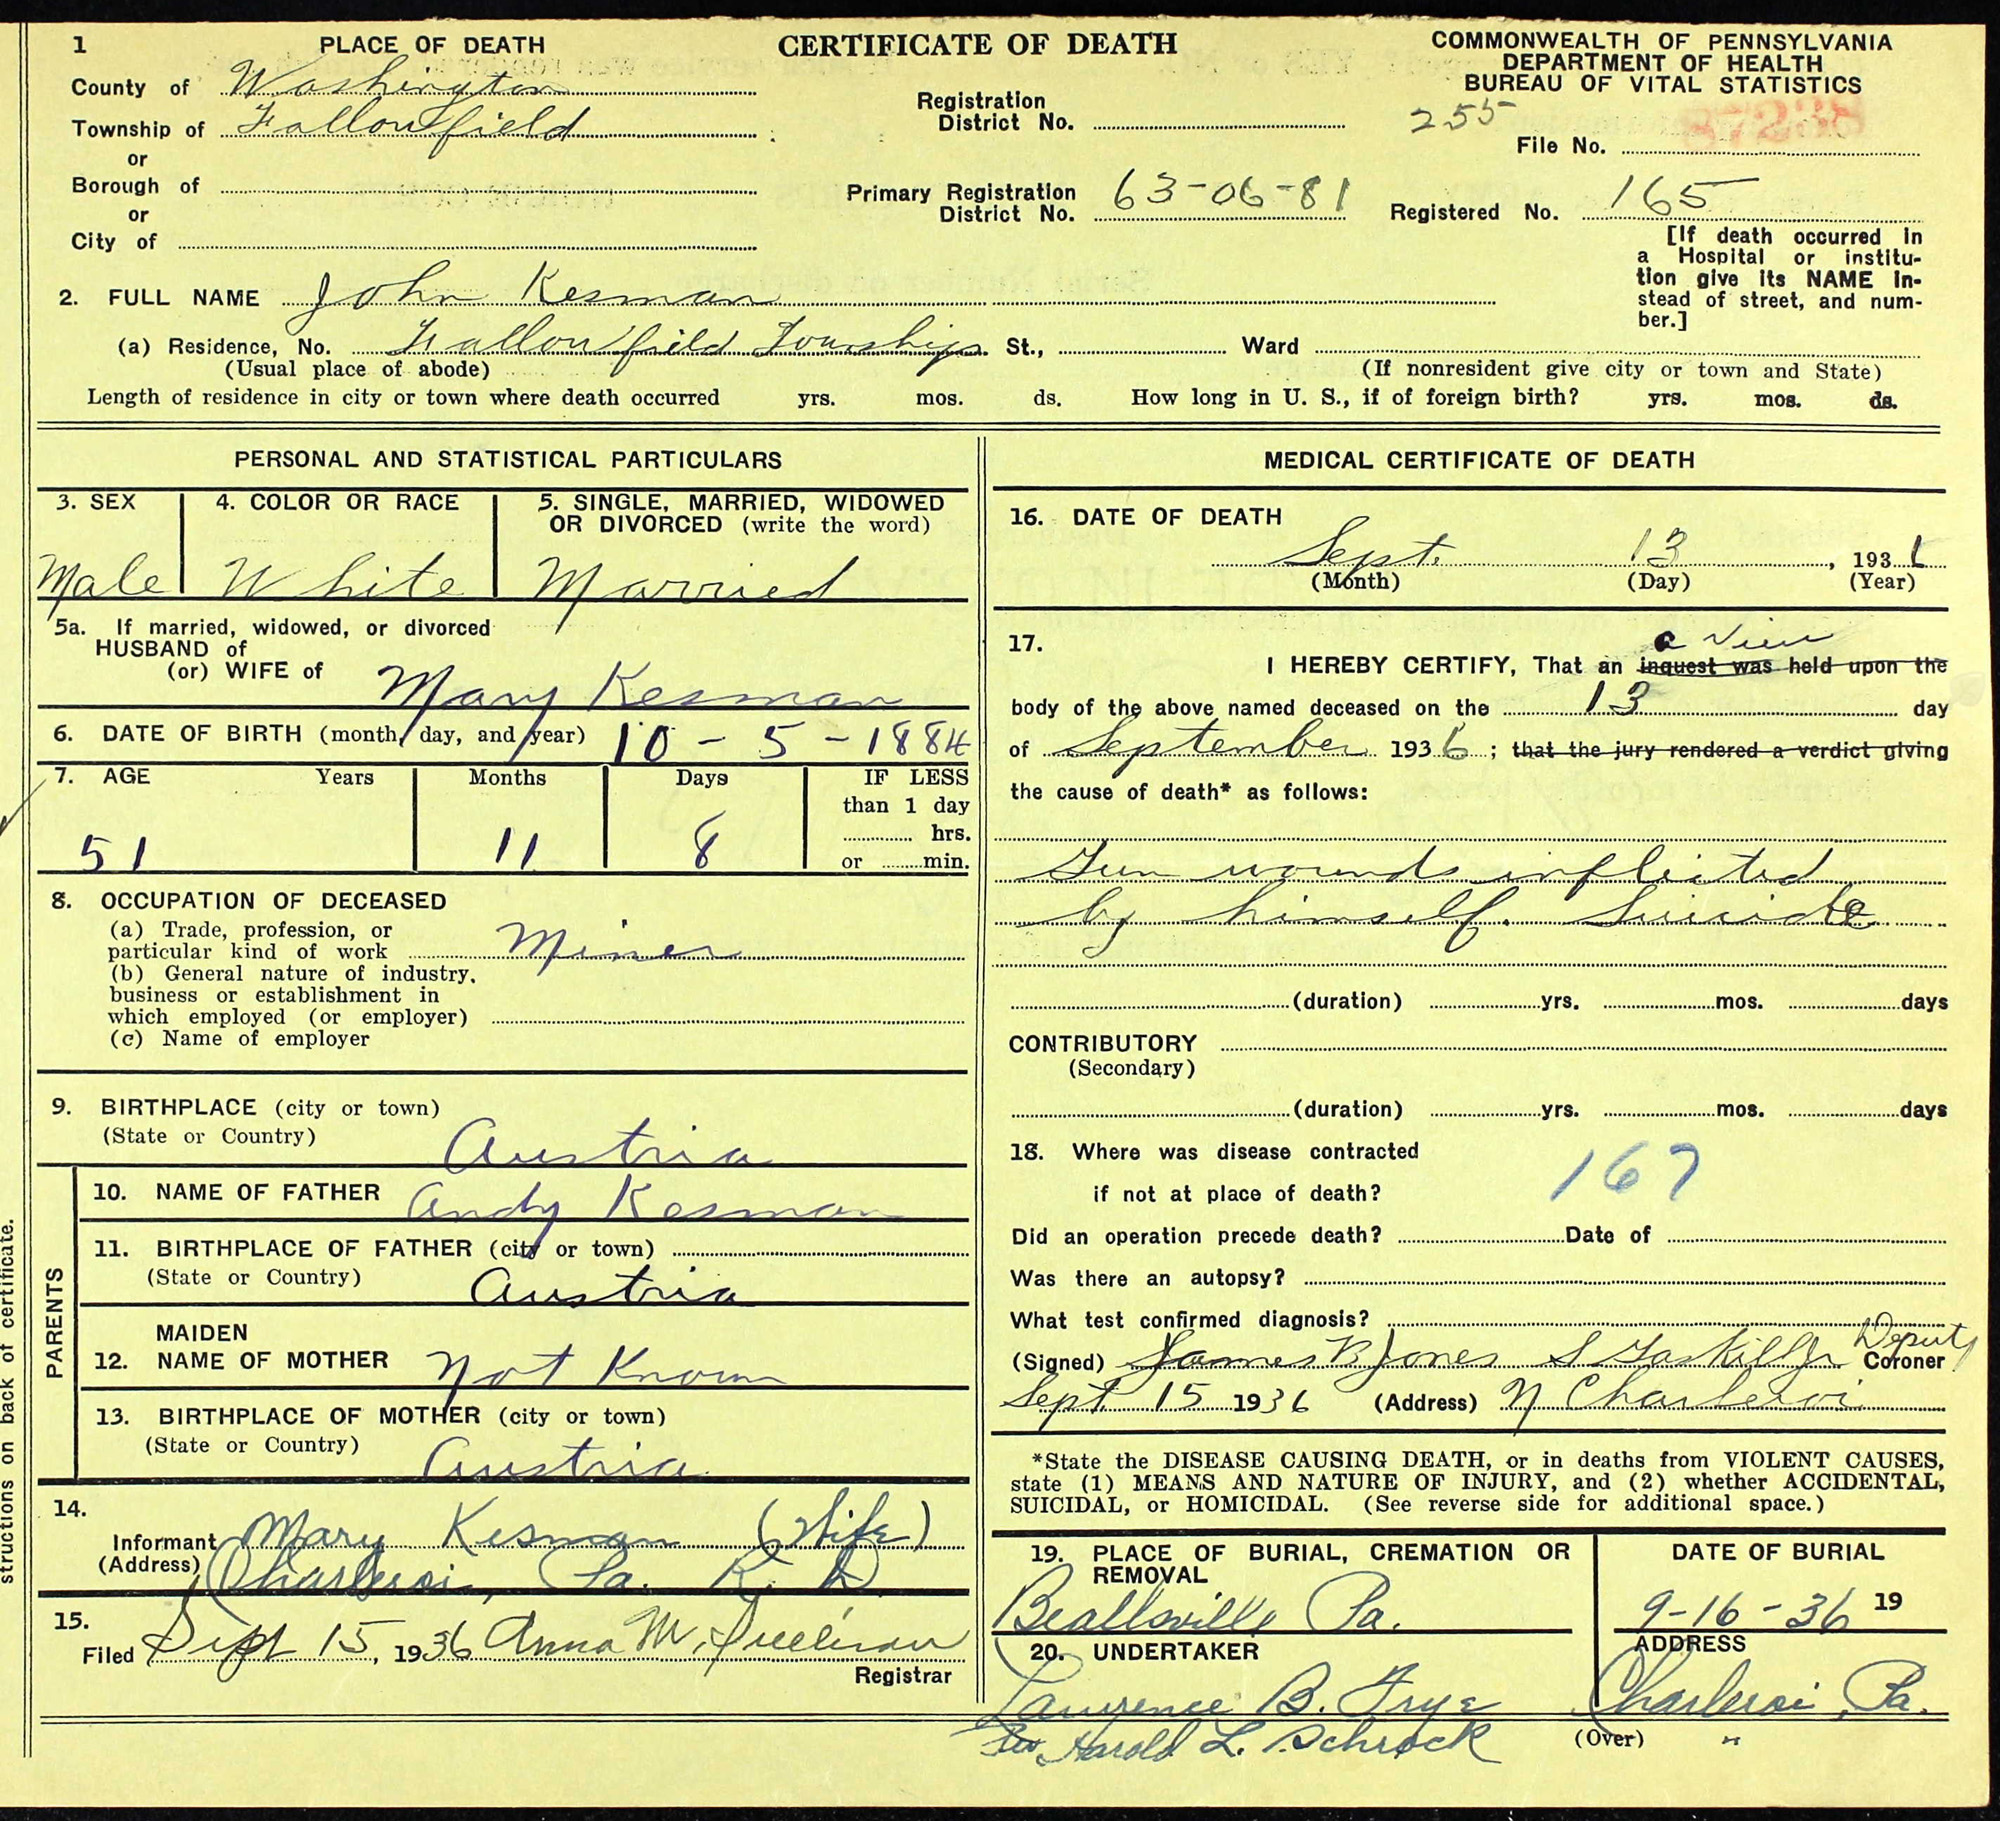 1 PLACE OF DEATH
CERTIFICATE OF DEATH
COMMONWEALTH OF PENNSYLVANIA
DEPARTMENT OF HEALTH
BUREAU OF VITAL STATISTICS
County of Washington
Township of Fallowfield
or
Borough of
or
City of
Registration
District No.
255
File No.
Primary Registration
District No. 63-06-81
Registered No. 165
[If death occurred in
a Hospital or institu-
tion give its NAME in-
stead of street, and num-
ber.]
2. FULL NAME John Kesman
(a) Residence, No. Fallowfield Township St., Ward
(Usual place of abode) (If nonresident give city or town and State)
Length of residence in city or town where death occurred yrs. mos. ds. How long in U. S., if of foreign birth? yrs. mos. ds.
PERSONAL AND STATISTICAL PARTICULARS
3. SEX 4. COLOR OR RACE 5. SINGLE, MARRIED, WIDOWED
OR DIVORCED (write the word)
Male White Married
5a. If married, widowed, or divorced
HUSBAND of
(or) WIFE of Mary Kesman
6. DATE OF BIRTH (month, day, and year) 10-5-1884
7. AGE Years Months Days IF LESS
than 1 day
hrs.
or min.
51 11 8
8. OCCUPATION OF DECEASED
(a) Trade, profession, or
particular kind of work Miner
(b) General nature of industry,
business or establishment in
which employed (or employer)
(c) Name of employer
9. BIRTHPLACE (city or town)
(State or Country) Austria
PARENTS
10. NAME OF FATHER Andy Kesman
11. BIRTHPLACE OF FATHER (city or town)
(State or Country) Austria
MAIDEN
12. NAME OF MOTHER Not Known
13. BIRTHPLACE OF MOTHER (city or town)
(State or Country) Austria
14.
Informant Mary Kesman (Wife)
(Address) Charleroi, Pa. R. D.
15.
Filed Sept 15, 1936 Anna M.
Registrar
structions on back of certificate.
MEDICAL CERTIFICATE OF DEATH
16. DATE OF DEATH
Sept. 13, 193
(Month) (Day) (Year)
17. a View
I HEREBY CERTIFY, That an inquest was held upon the
body of the above named deceased on the 13 day
of September 1936; that the jury rendered a verdict giving
the cause of death* as follows:
Gun wounds inflicted
by himself. Suicide
(duration) yrs. mos. days
CONTRIBUTORY
(Secondary)
(duration) yrs. mos. days
18. Where was disease contracted
if not at place of death?
167
Did an operation precede death? Date of
Was there an autopsy?
What test confirmed diagnosis?
Deputy
(Signed) James B Jones S Gaskill Jr Coroner
Sept 15 1936 (Address) N Charleroi
*State the DISEASE CAUSING DEATH, or in deaths from VIOLENT CAUSES,
state (1) MEANS AND NATURE OF INJURY, and (2) whether ACCIDENTAL,
SUICIDAL, or HOMICIDAL. (See reverse side for additional space.)
19. PLACE OF BURIAL, CREMATION OR
REMOVAL
Beallsville Pa.
DATE OF BURIAL
9-16-36 19
20. UNDERTAKER
Lawrence B. Frye
Per Harold L. Schrock
ADDRESS
Charleroi, Pa.
(Over) "